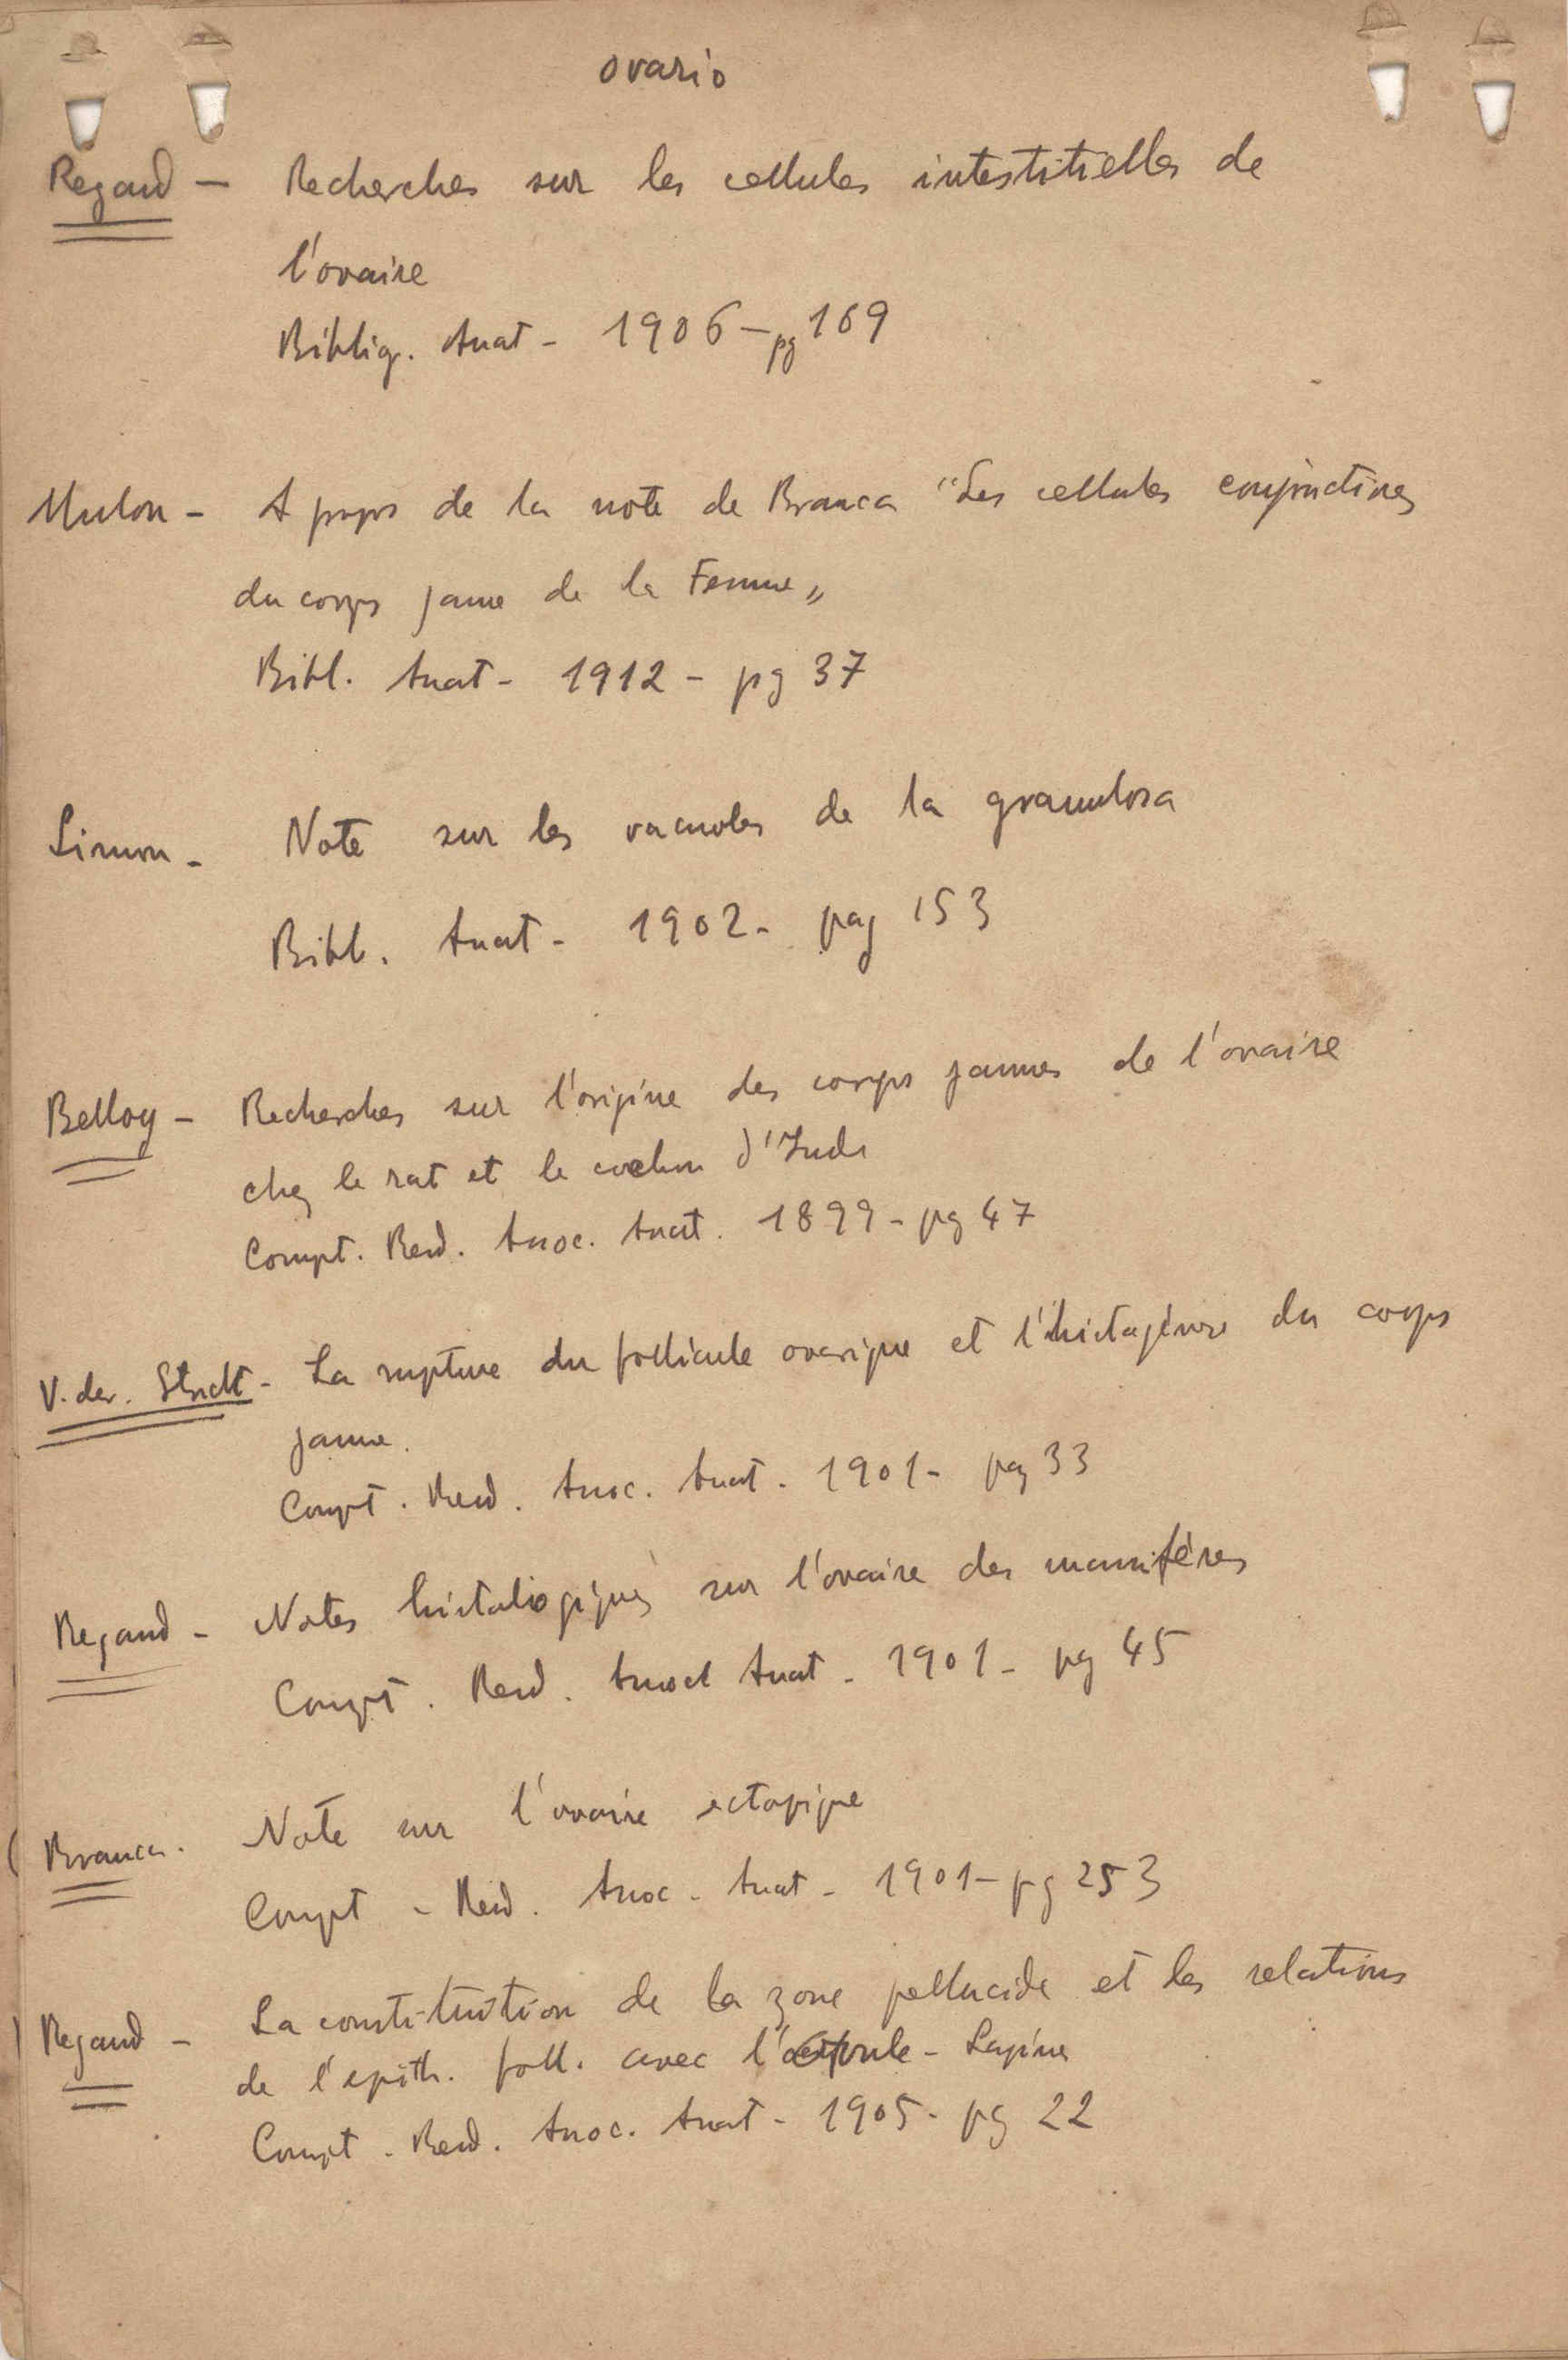 ovario
Regaud - Recherches sur les cellules intestitielles de
l'ovaire
Bibliog. Anat - 1906 - pg 169
Mulon - A propos de la note de Branca "Les cellules conjonctives
du corps jaune de la Femme"
Bibl. Anat - 1912 - pg 37
Limon - Note sur les vacuoles de la granulosa
Bibl. Anat - 1902 - pag 153
Belloy - Recherches sur l'origine des corps jaunes de l'ovaire
chez le rat et le cochon d'Inde
Compt. Rend. Assoc. Anat. 1899 - pg 47
V. der. Stricht - La rupture du follicule ovarique et l'histogénèse du corps
jaune.
Compt. Rend. Assoc. Anat. 1901 - pg 33
Regaud - Notes histologiques sur l'ovaire des mamifères
Compt. Rend. Anat - 1901 - pg 45
Branca. Note sur l'ovaire ectopique
Compt - Rend. Assoc - Anat - 1901 - pg 253
Regaud - La constitution de la zone pellucide et les relations
de l'epith. foll. avec l'ovule - Lapine
Compt - Rend. Assoc. Anat - 1905 - pg 22